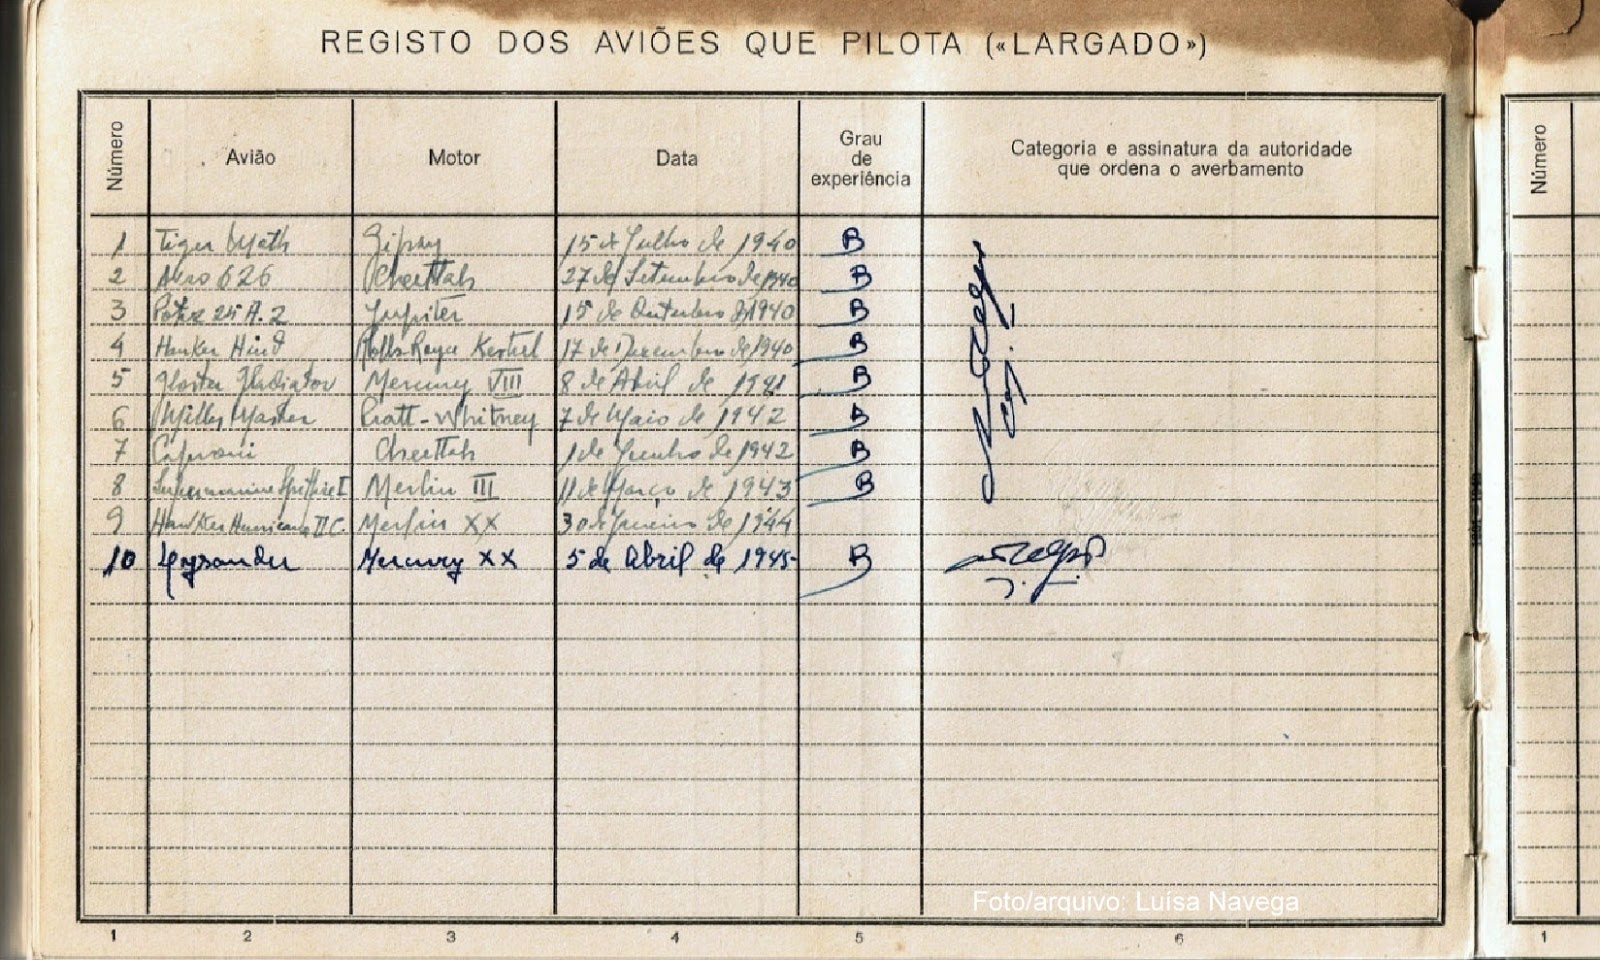 REGISTO DOS AVIÕES QUE PILOTA («LARGADO»)
Número Avião Motor Data Grau de experiência Categoria e assinatura da autoridade que ordena o averbamento Número
1 Tiger Moth Gipsy 15 de Julho de 1940 B
2 Avro 626 Cheettah 27 de Setembro de 1940 B
3 Potez 25 A.2 Jupiter 15 de Outubro de 1940 B
4 Hawker Hind Rolls Royce Kestrel 17 de Dezembro de 1940 B
5 Gloster Gladiator Mercury VIII 8 de Abril de 1941 B
6 Milles Master Pratt-Whitney 7 de Maio de 1942 B
7 Caproni Cheettah 1 de Junho de 1942 B
8 Supermarine Spitfire I Merlin III 11 de Março de 1943 B
9 Hawker Hurricane II C. Merlin XX 30 de Janeiro de 1944
10 Lysander Mercury XX 5 de Abril de 1945 B
Foto/arquivo: Luísa Navega
1 2 3 4 5 6 1